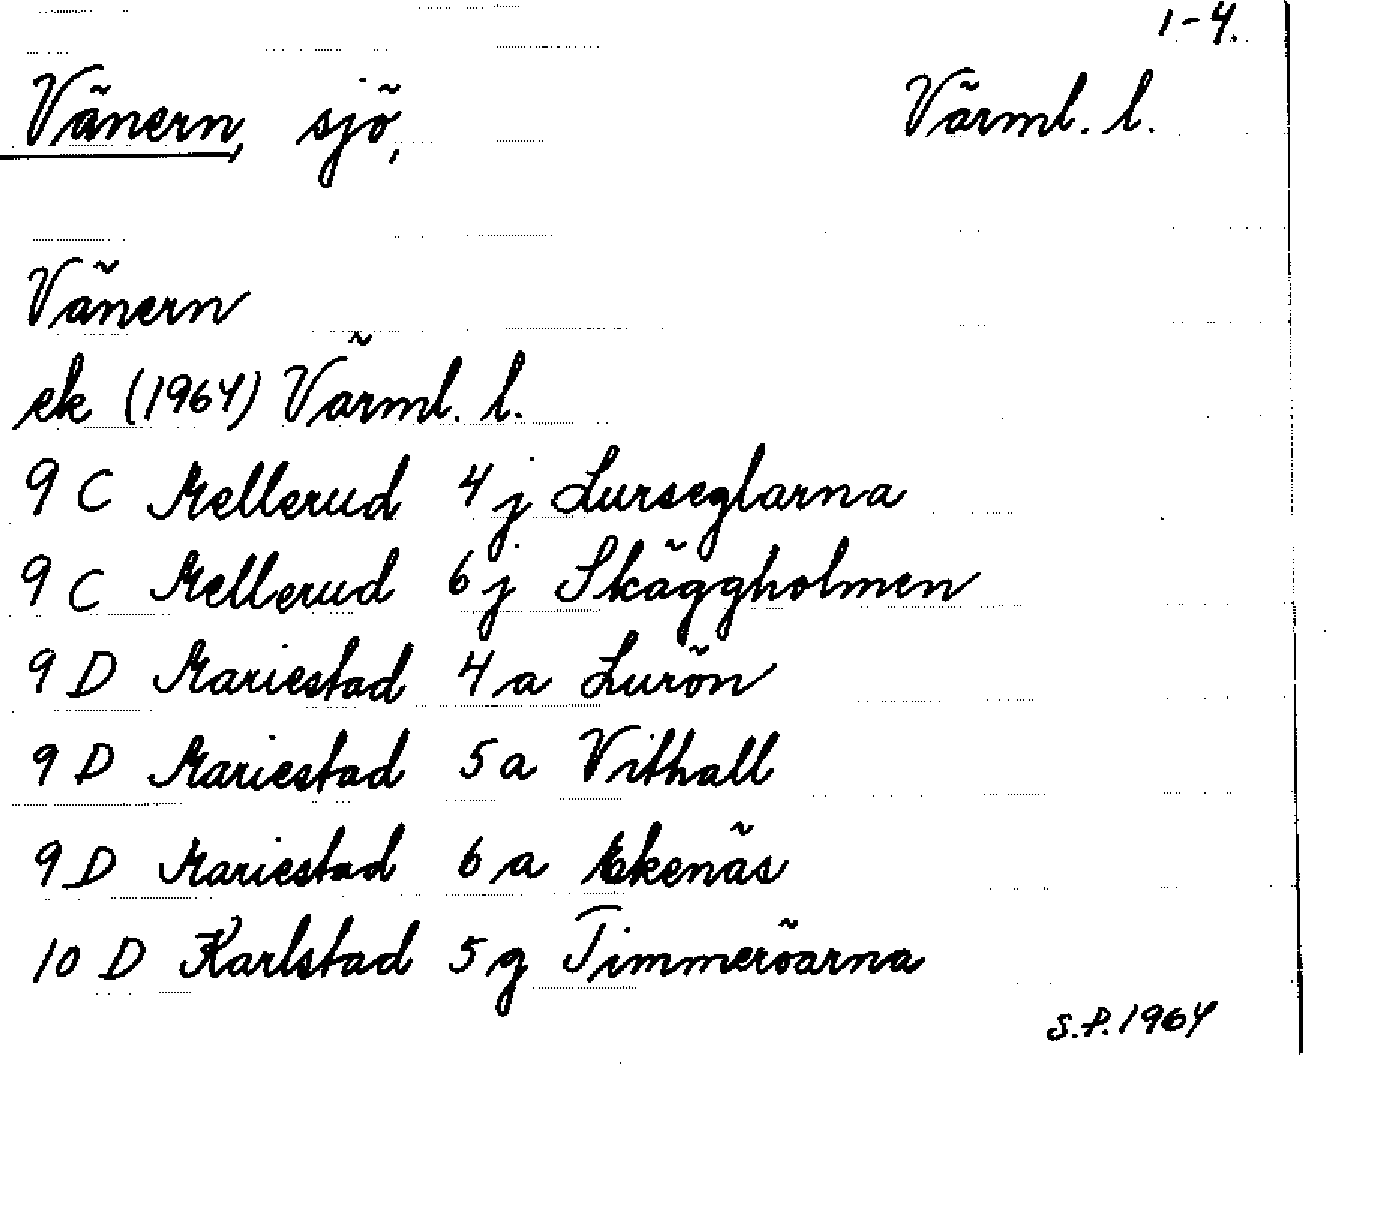 1-4.
Vänern, sjö, Värml. l.
Vänern
ek (1964) Värml. l.
9 C Mellerud 4 j Lurseglarna
9 C Mellerud 6 j Skäggholmen
9 D Mariestad 4 a Lurön
9 D Mariestad 5 a Vithall
9 D Mariestad 6 a Ekenäs
10 D Karlstad 5 g Timmeröarna
S.P. 1964